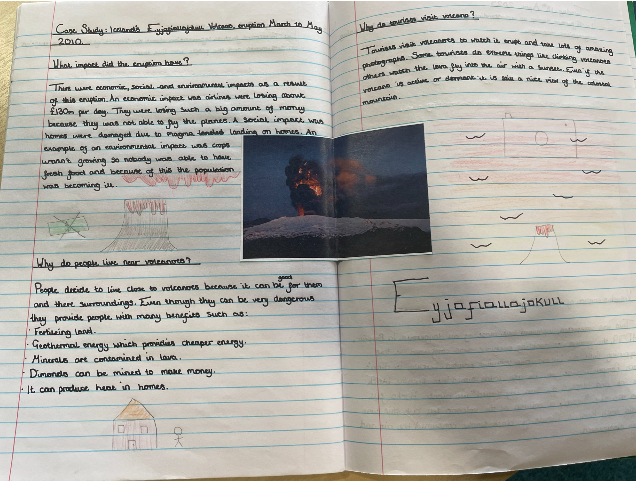 Case Study: Iceland's Eyjafjallajokull Volcano, eruption March to May
2010.
What impact did the eruption have?
There were economic, social and environmental impacts as a result
of this eruption. An economic impact was airlines were losing about
£130m per day. They were losing such a big amount of money
because they was not able to fly the planes. A social impact was
homes were damaged due to magma landed landing on homes. An
example of an environmental impact was crops
wasn't growing so nobody was able to have
fresh food and because of this the population
was becoming ill.
Why do people live near volcanoes?
People decide to live close to volcanoes because it can be good for them
and there surroundings. Even though they can be very dangerous
they provide people with many benefits such as:
· Fertilizing land.
· Geothermal energy which provides cheaper energy.
· Minerals are contained in lava.
· Dimonds can be mined to make money.
· It can produce heat in homes.
Why do tourists visit volcano?
Tourists visit volcanoes to watch it erupt and take lots of amazing
photographs. Some tourists do extreme things like climbing volcanoes
others watch the lava fly into the air with a sunset. Even if the
volcano is active or dormant it is like a nice view of the
mountain.
Eyjafjallajokull